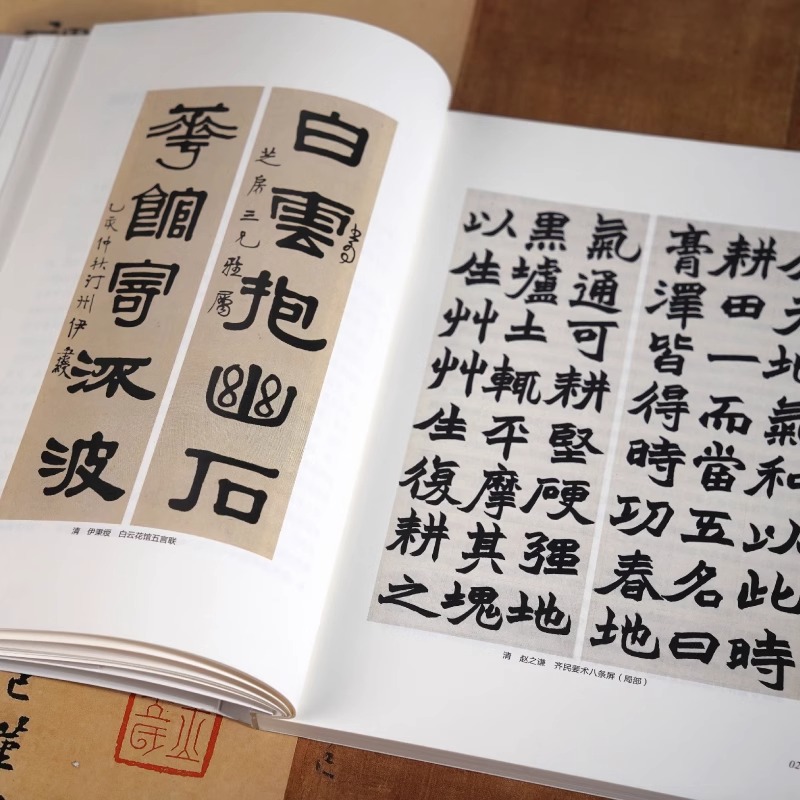 白雲抱幽石
芝房三兄雅屬
華館寄流波
乙亥仲秋汀州伊秉綬
清 伊秉绶 白云花馆五言联
分天地氣和以此時
耕田一而當五名曰
膏澤皆得時功春地
氣通可耕堅硬強地
黑壚土輒平摩其塊
以生艸艸生復耕之
清 赵之谦 齐民要术八条屏（局部）